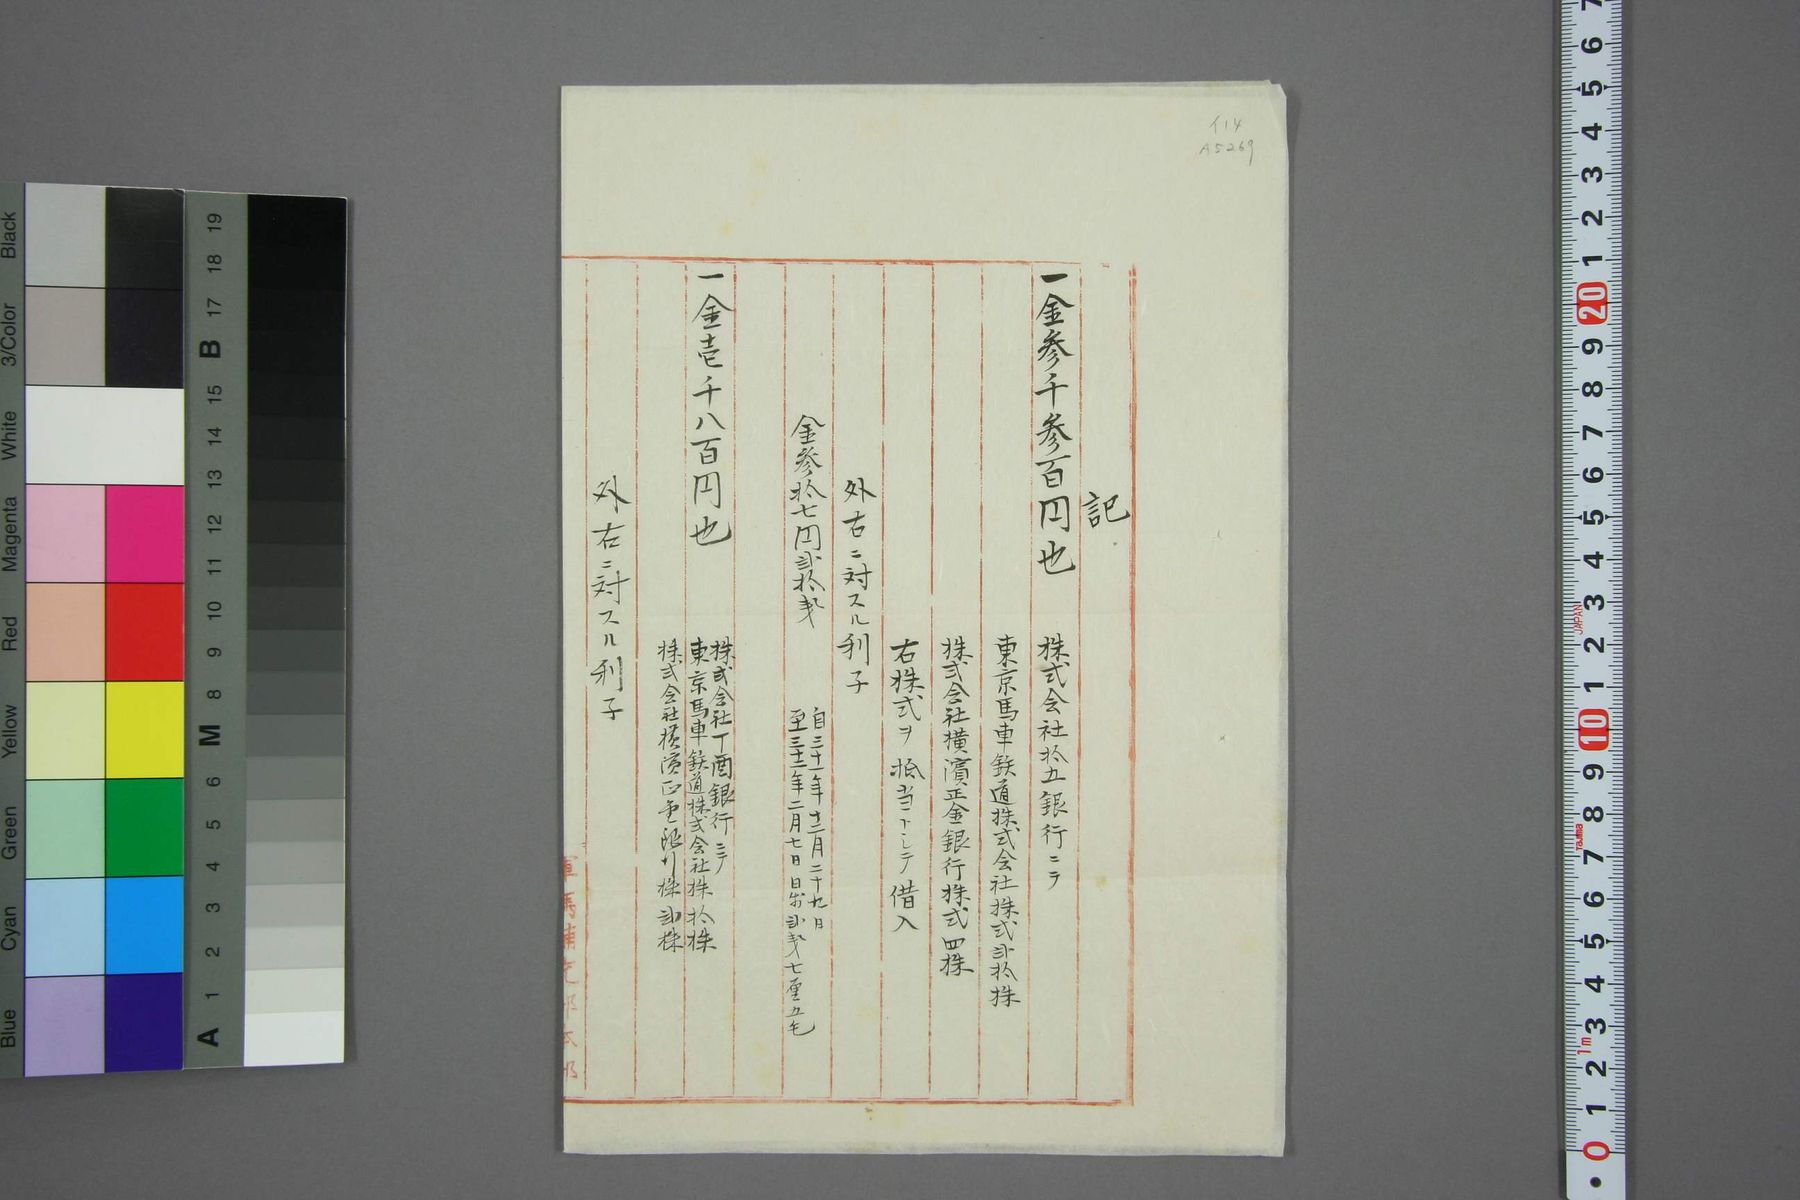 イ14
A5269
記
一金参千参百円也
株式会社拾五銀行ニテ
東京馬車鉄道株式会社株式弐拾株
株式会社横濱正金銀行株式四株
右株式ヲ抵当トシテ借入
外右ニ対スル利子
金参拾七円弐拾銭
自三十一年十二月二十九日
至三十二年二月七日日歩弐銭七厘五毛
一金壱千八百円也
株式会社丁酉銀行ニテ
東京馬車鉄道株式会社株拾株
株式会社横濱正金銀行株弐株
外右ニ対スル利子
Black
3/Color
White
Magenta
Red
Yellow
Green
Cyan
Blue
19
18
17
B
15
14
13
12
11
10
9
8
M
6
5
4
3
2
1
A
7
6
5
4
3
2
1
20
9
8
7
6
5
4
3
2
1
10
9
8
7
6
5
4
3
2
1
0
JAPAN
Tajima
1m